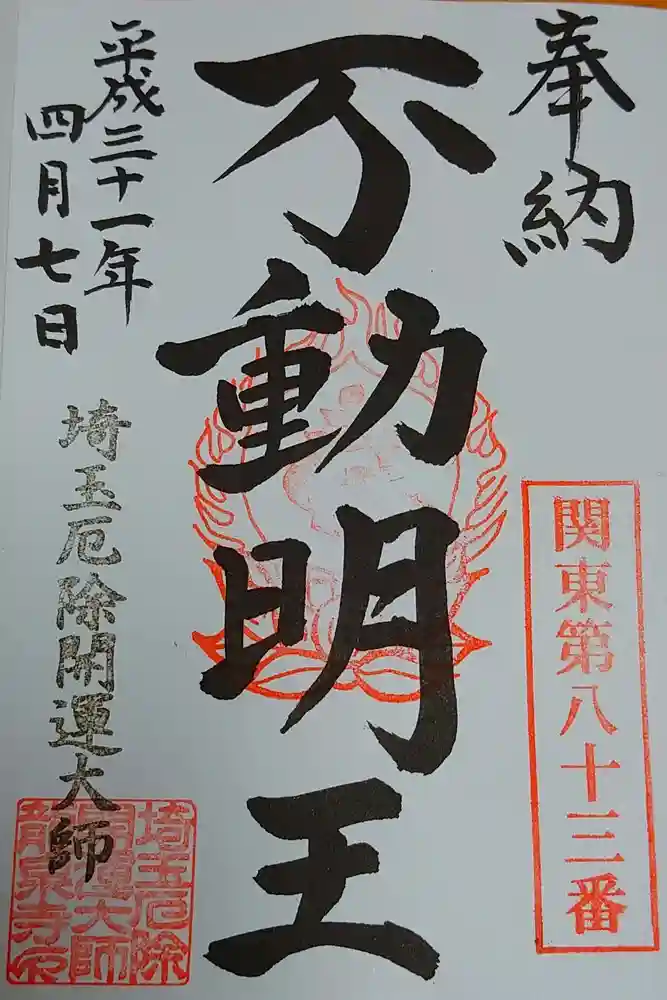 奉納
関東第八十三番
不動明王
平成三十一年
四月七日
埼玉厄除開運大師
埼玉厄除
開運大師
龍泉寺印